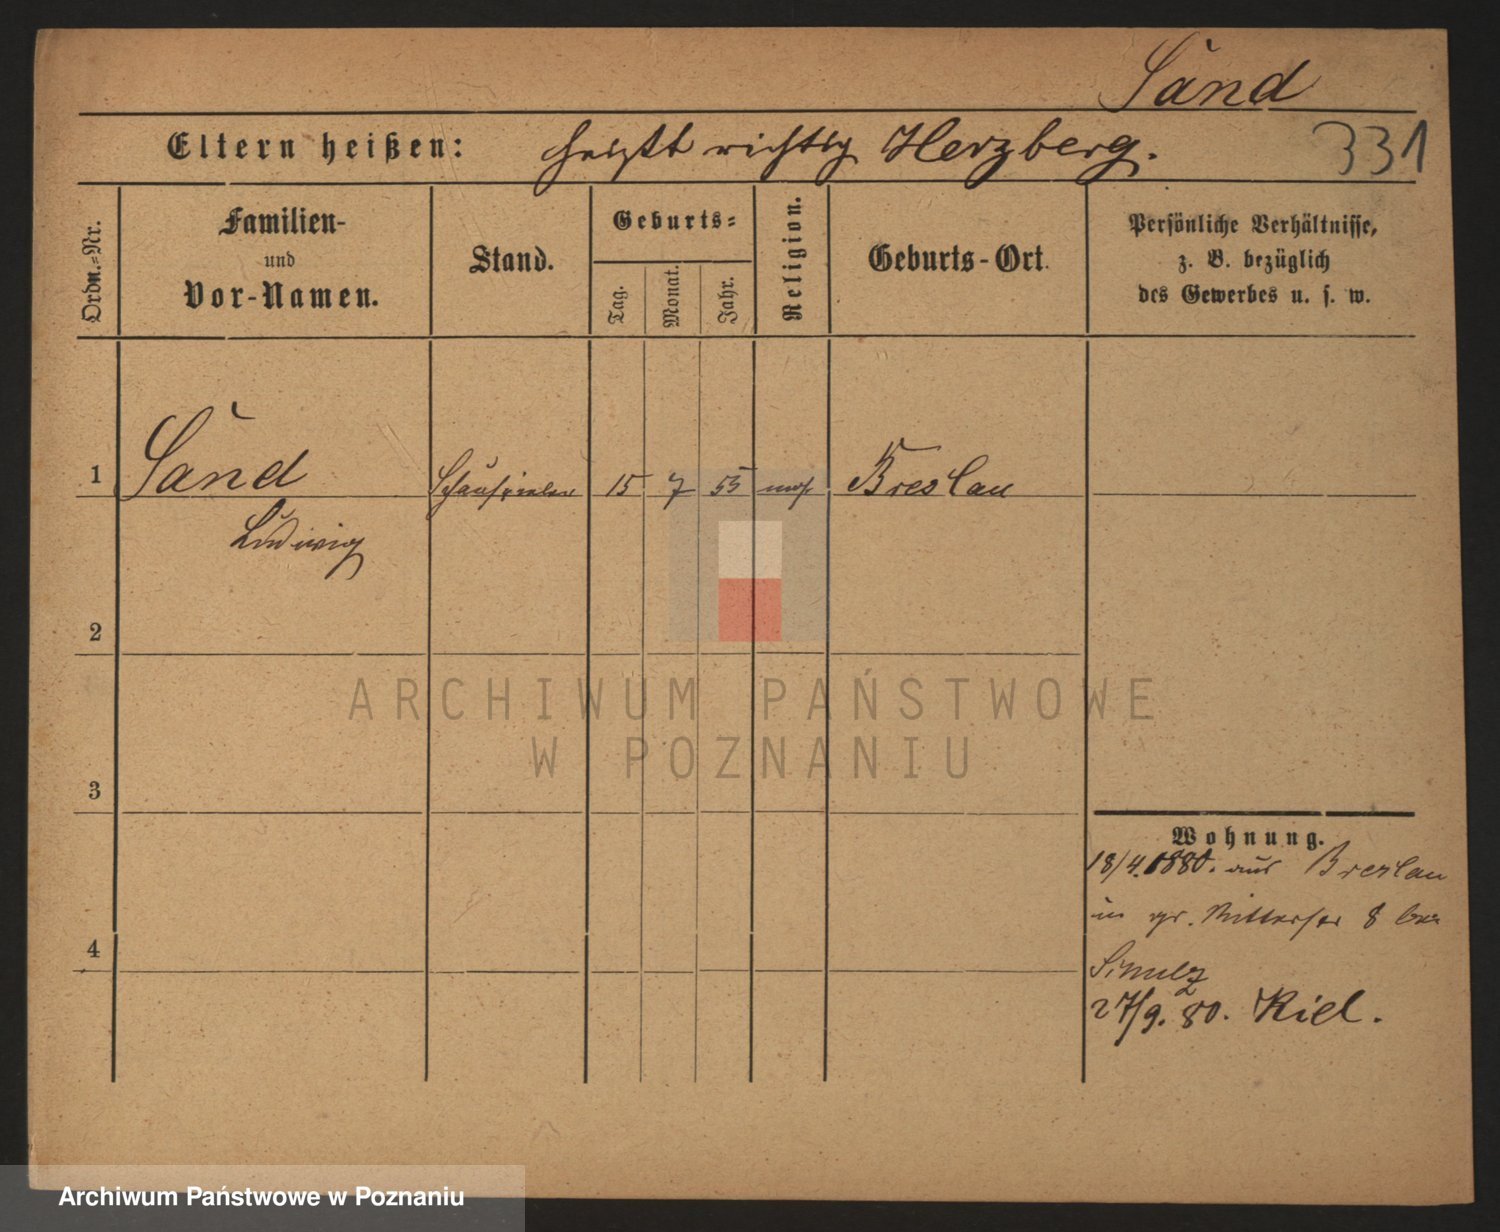 Sand
Eltern heißen: heißt richtig Herzberg. 331
Ordn.-Nr. Familien- und Vor-Namen. Stand. Geburts- Tag. Monat. Jahr. Religion. Geburts-Ort. Persönliche Verhältnisse, z. B. bezüglich des Gewerbes u. s. w.
1 Sand Schauspieler 15 7 55 mos. Breslau
Ludwig
2
ARCHIWUM PAŃSTWOWE
W POZNANIU
3
Wohnung.
18/4. 1880. aus Breslau
in gr. Ritterstr 8 bei
4
27/9. 80. Kiel.
Archiwum Państwowe w Poznaniu